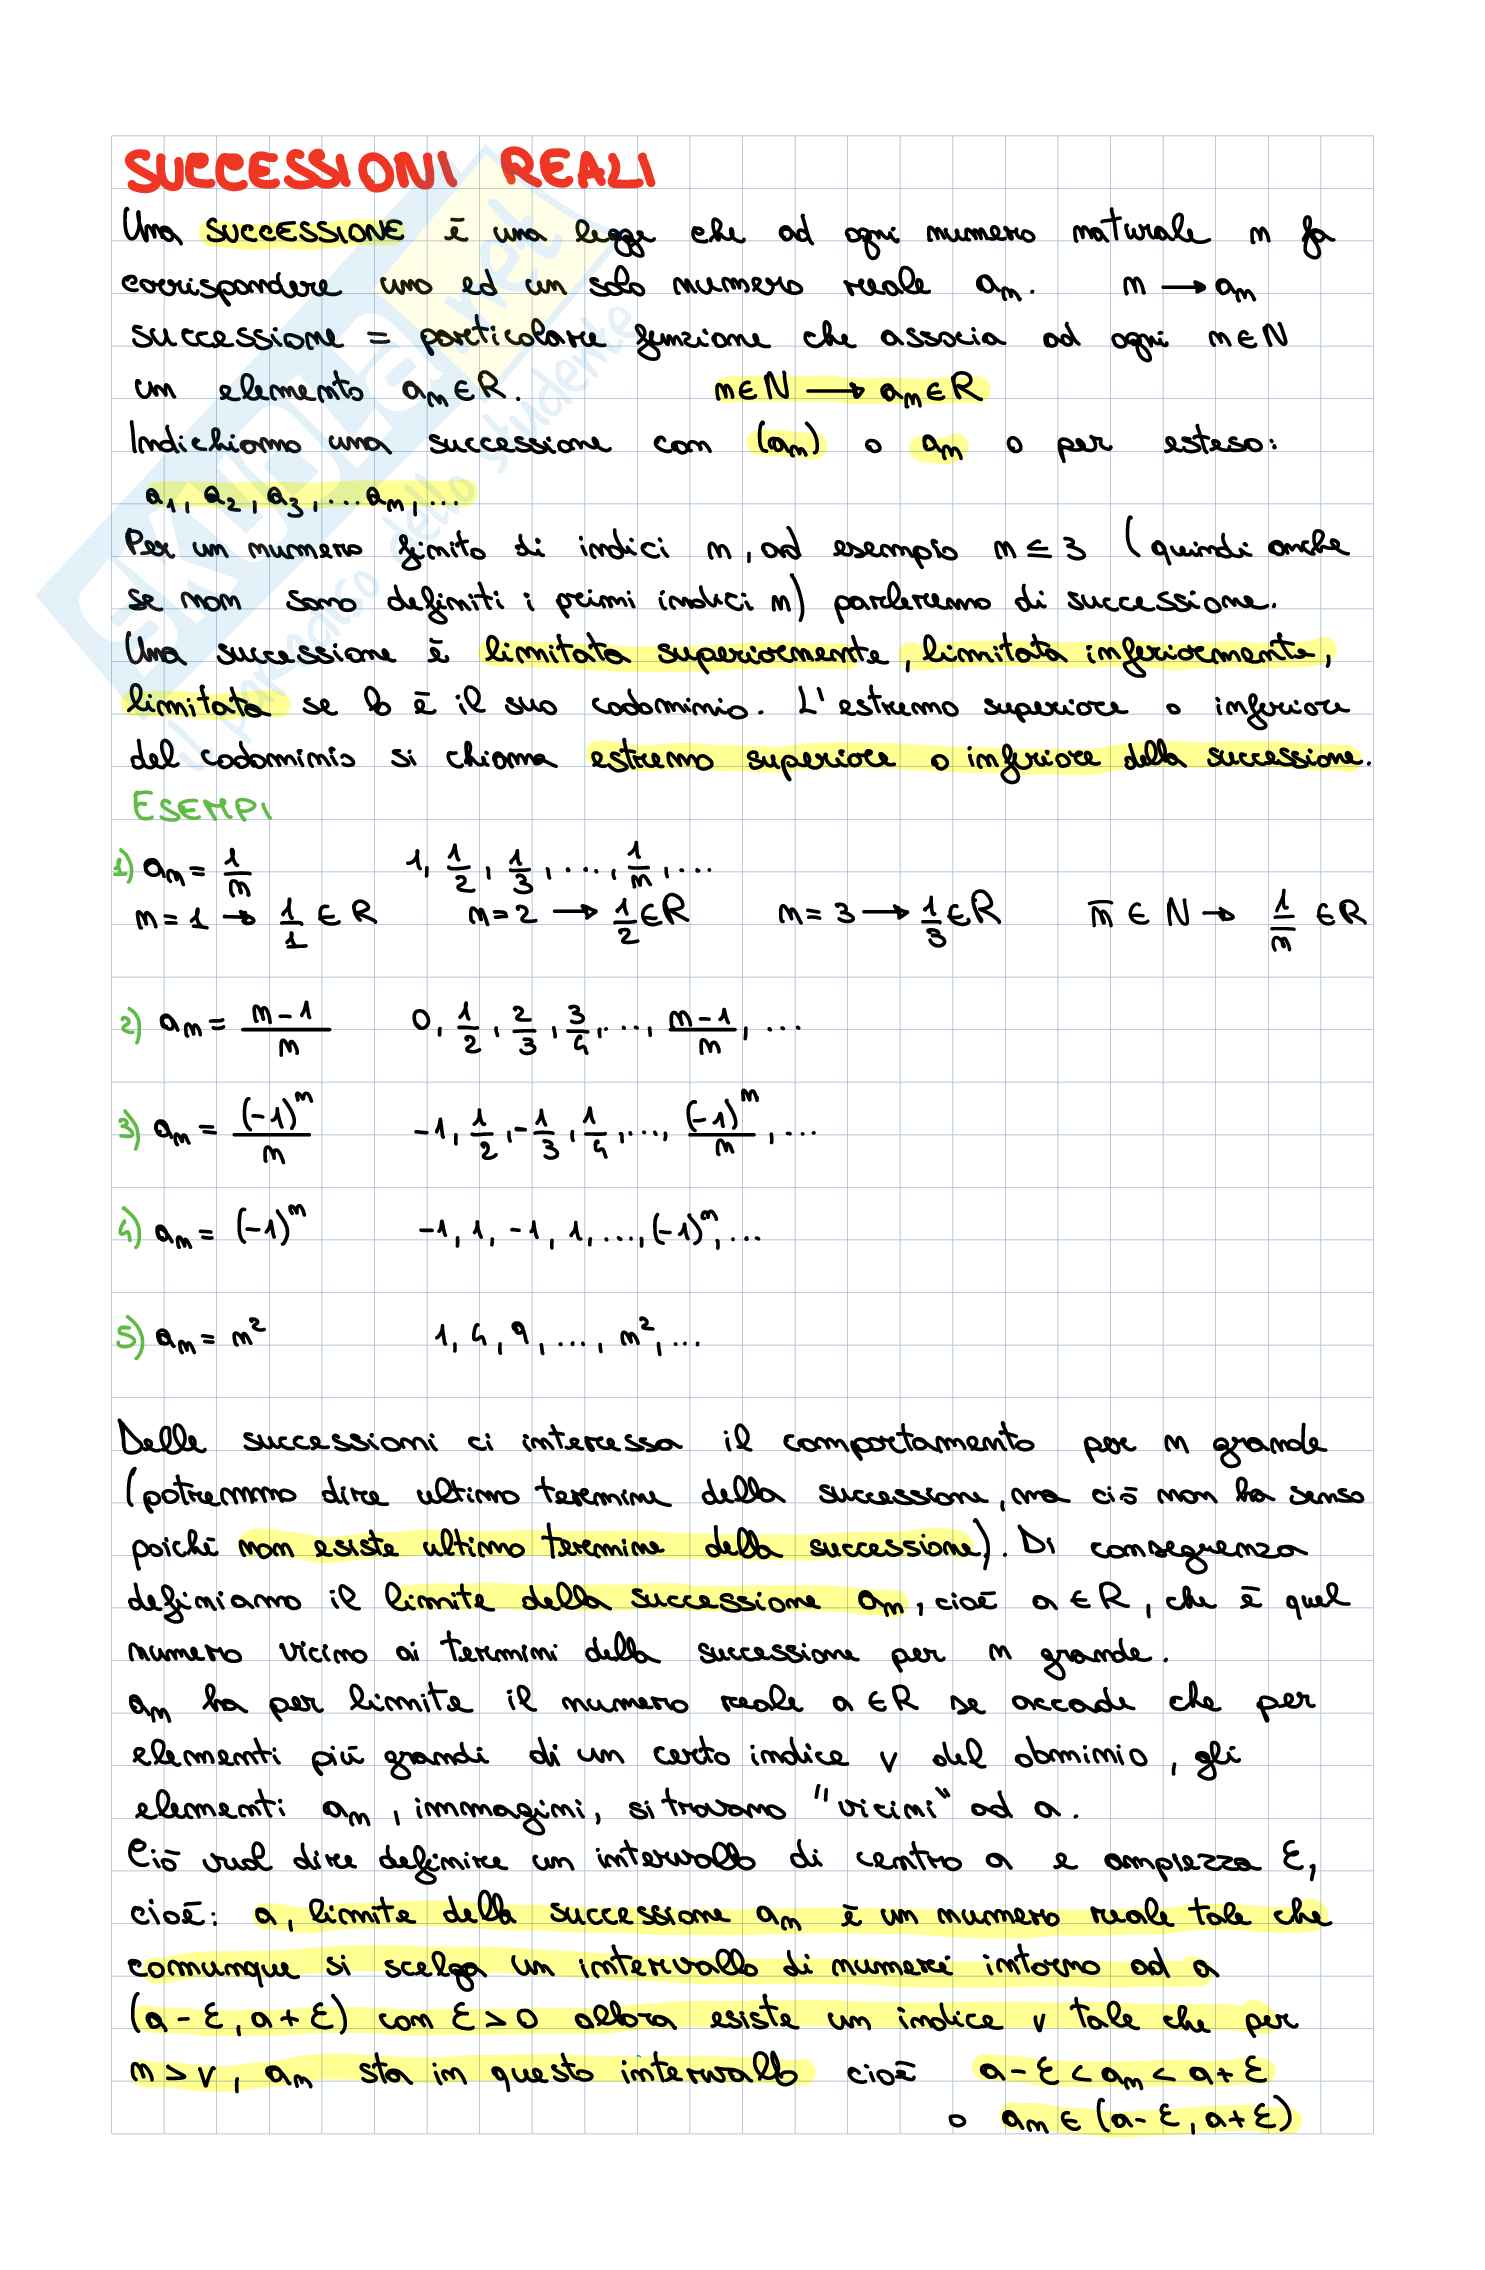 SUCCESSIONI REALI
Una SUCCESSIONE è una legge che ad ogni numero naturale n fa
corrispondere uno ed un solo numero reale aₙ. n → aₙ
successione = particolare funzione che associa ad ogni n∈N
un elemento aₙ∈R. n∈N → aₙ∈R
Indichiamo una successione con (aₙ) o aₙ o per esteso:
a₁, a₂, a₃, ... aₙ, ...
Per un numero finito di indici n, ad esempio n ≤ 3 (quindi anche
se non sono definiti i primi indici n) parleremo di successione.
Una successione è limitata superiormente, limitata inferiormente,
limitata se lo è il suo codominio. L'estremo superiore o inferiore
del codominio si chiama estremo superiore o inferiore della successione.
ESEMPI
1) aₙ = 1/n 1, 1/2, 1/3, ..., 1/n, ...
n = 1 → 1/1 ∈ R n = 2 → 1/2 ∈ R n = 3 → 1/3 ∈ R n̅ ∈ N → 1/n ∈ R
2) aₙ = (n-1)/n 0, 1/2, 2/3, 3/4, ..., (n-1)/n, ...
3) aₙ = (-1)ⁿ/n -1, 1/2, -1/3, 1/4, ..., (-1)ⁿ/n, ...
4) aₙ = (-1)ⁿ -1, 1, -1, 1, ..., (-1)ⁿ, ...
5) aₙ = n² 1, 4, 9, ..., n², ...
Delle successioni ci interessa il comportamento per n grande
(potremmo dire ultimo termine della successione, ma ciò non ha senso
poiché non esiste ultimo termine della successione). Di conseguenza
definiamo il limite della successione aₙ, cioè a ∈ R, che è quel
numero vicino ai termini della successione per n grande.
aₙ ha per limite il numero reale a ∈ R se accade che per
elementi più grandi di un certo indice ν del dominio, gli
elementi aₙ, immagini, si trovano "vicini" ad a.
Ciò vuol dire definire un intervallo di centro a e ampiezza ε,
cioè: a, limite della successione aₙ è un numero reale tale che
comunque si scelga un intervallo di numeri intorno ad a
(a - ε, a + ε) con ε > 0 allora esiste un indice ν tale che per
n > ν, aₙ sta in questo intervallo cioè a - ε < aₙ < a + ε
o aₙ ∈ (a - ε, a + ε)